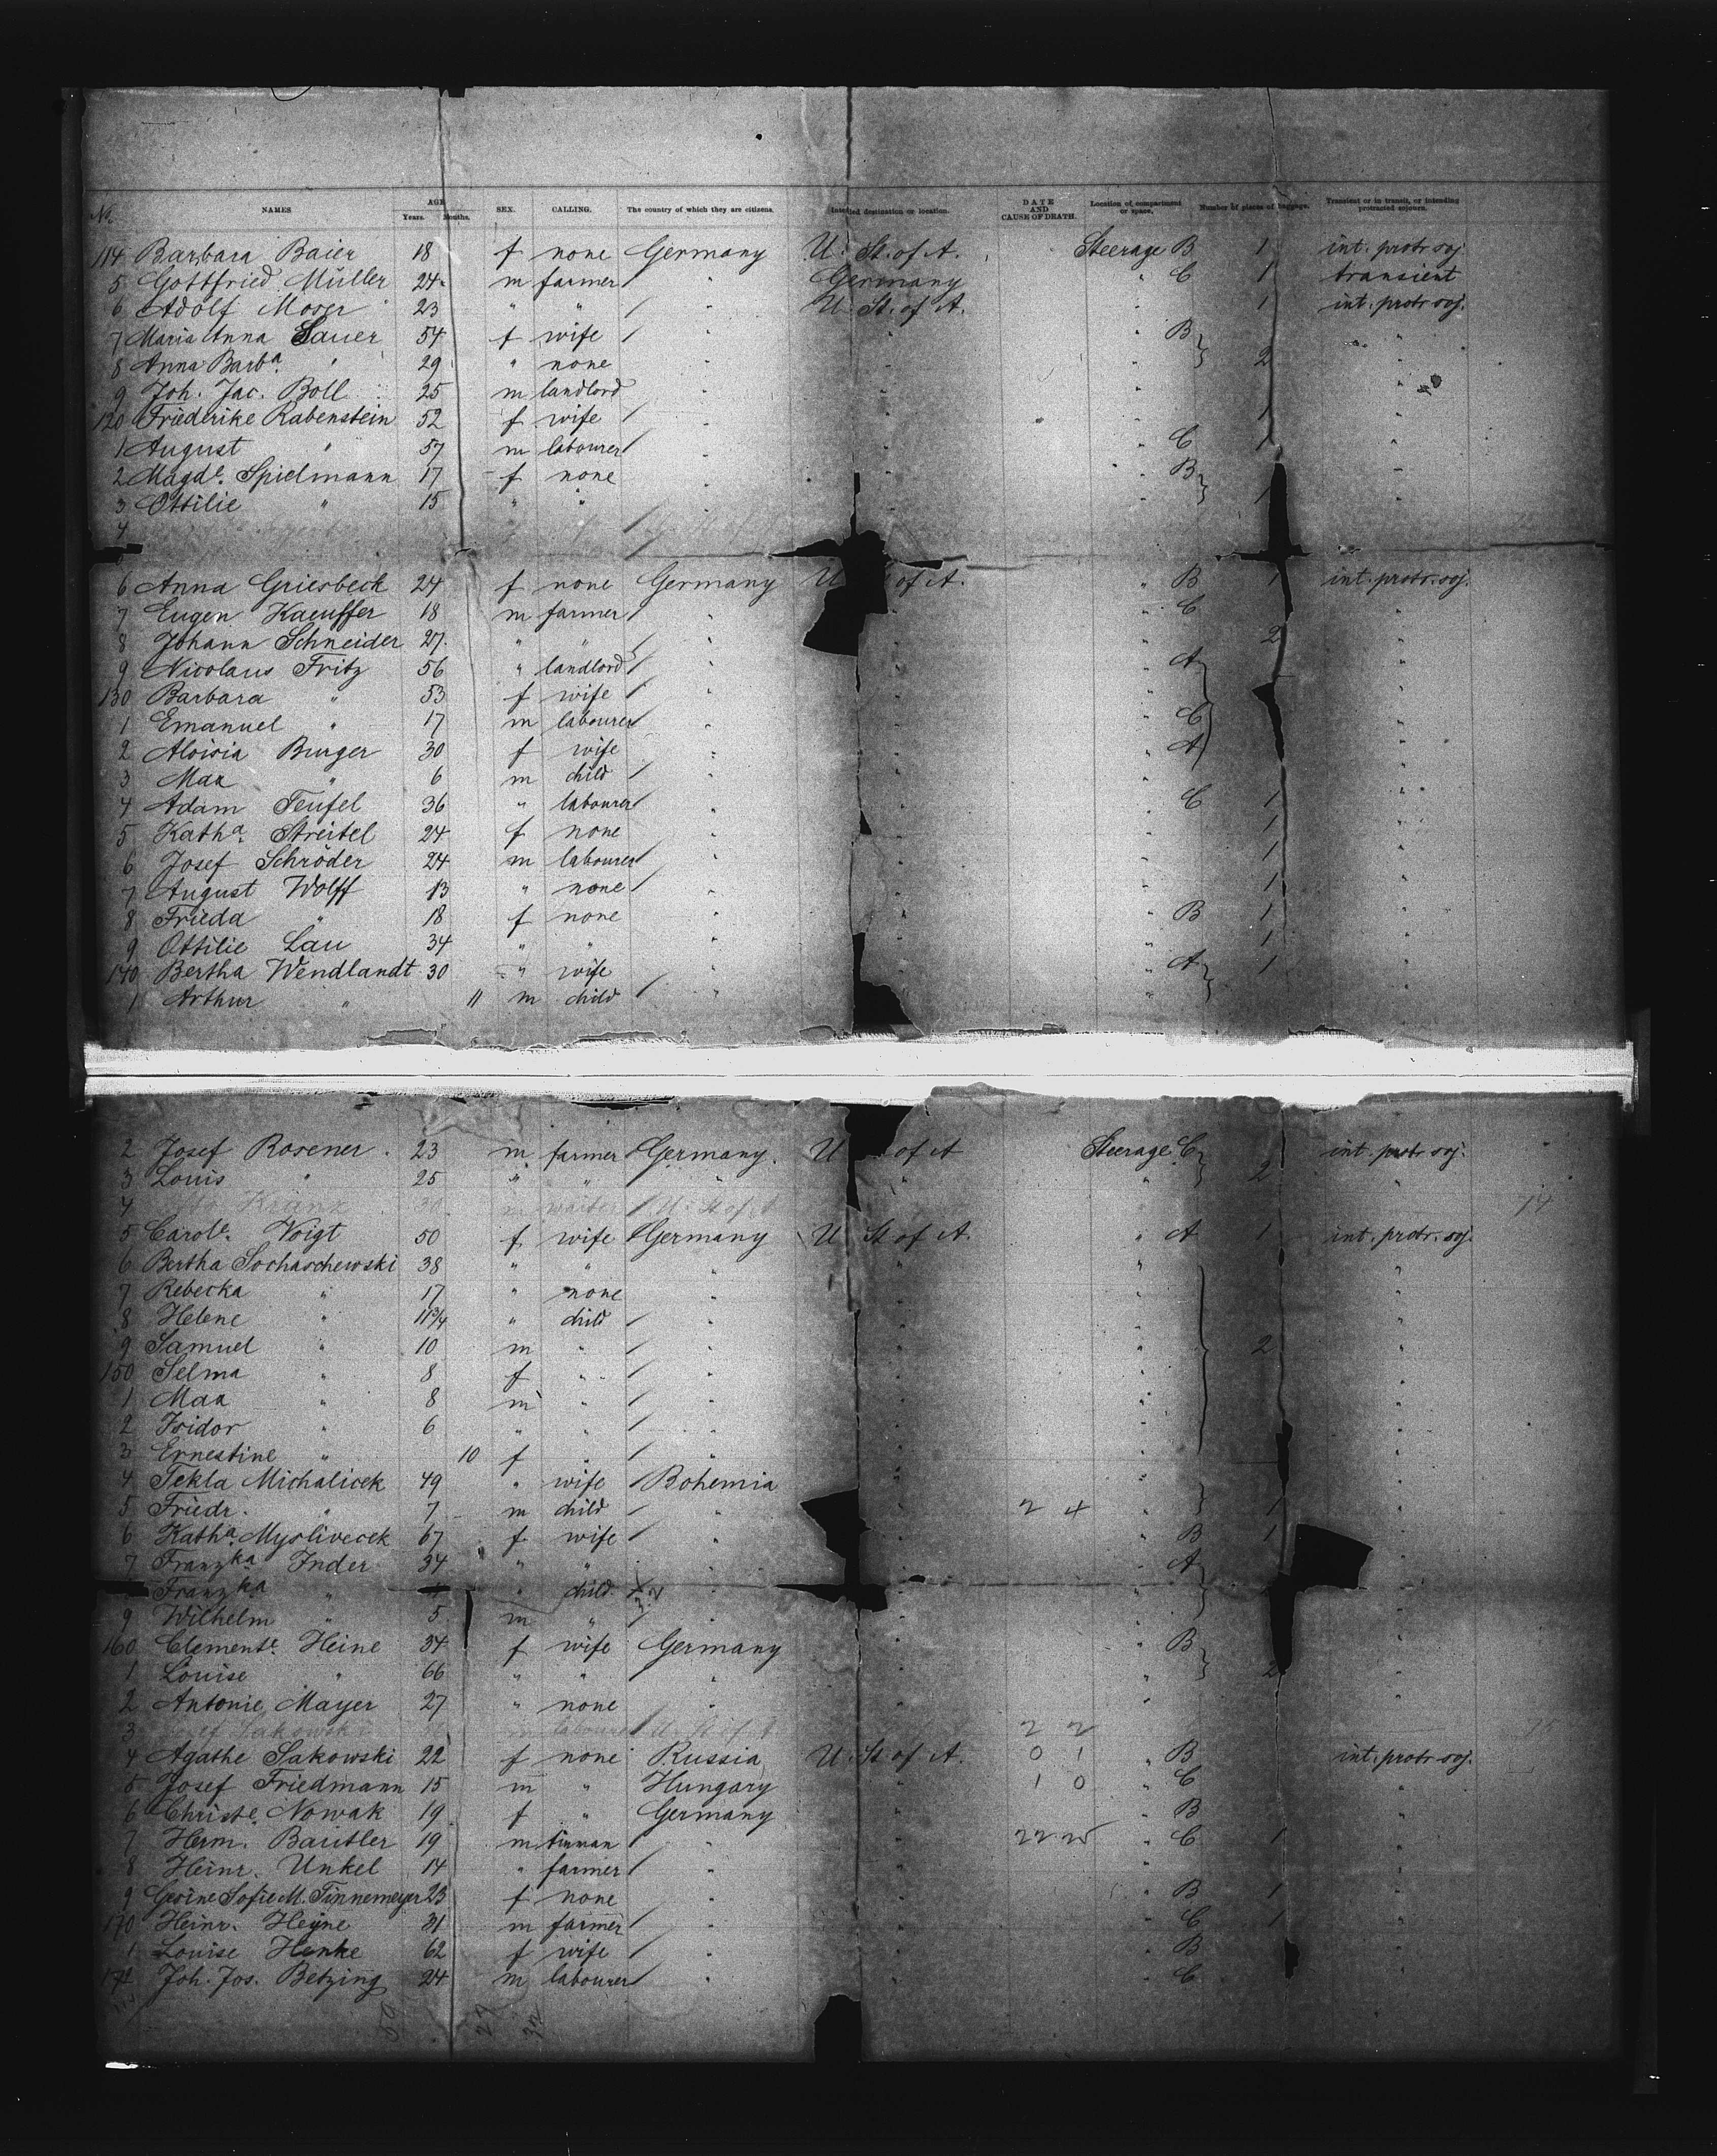 No. NAMES AGE Years. Months. SEX. CALLING. The country of which they are citizens. Intended destination or location. DATE AND CAUSE OF DEATH. Location of compartment or space. Number of pieces of baggage. Transient or in transit, or intending protracted sojourn.
114 Barbara Baier 18 f none Germany U. St. of A. Steerage B 1 int. protr. soj.
5 Gottfried Müller 24 m farmer / " Germany " C 1 transient
6 Adolf Moser 23 " " / " U. St. of A. " 1 int. protr. soj.
7 Maria Anna Sauer 54 f wife / " " B "
8 Anna Barba. " 29 " none " " " 2 "
9 Joh. Jac. Boll 25 m landlord " " " "
120 Friederike Rabenstein 52 f wife / " " " 1 "
1 August " 57 m labourer / " " C 1 "
2 Magde. Spielmann 17 f none " " B "
3 Ottilie " 15 " " " " " 1 "
4
6 Anna Griesbeck 24 f none Germany U of A. " B 1 int. protr. soj.
7 Eugen Kaeuffer 18 m farmer / " " C "
8 Johann Schneider 27 " " / " " 2 "
9 Nicolaus Fritz 56 " landlord / " " A "
130 Barbara " 53 f wife / " " "
1 Emanuel " 17 m labourer / " " C "
2 Aloisia Burger 30 f wife " " A "
3 Max " 6 m child / " " "
4 Adam Teufel 36 " labourer / " " C 1 "
5 Katha. Streitel 24 f none " " 1 "
6 Josef Schröder 24 m labourer / " " 1 "
7 August Wolff 13 " none / " " 1 "
8 Frieda " 18 f none " " B 1 "
9 Ottilie Lau 34 " " " " 1 "
140 Bertha Wendlandt 30 " wife " " A 1 "
1 Arthur " 11 m child / " " "
2 Josef Rosener 23 m farmer Germany U of A Steerage C int. protr. soj.
3 Louis " 25 " " " " " 2 "
4 Kranz 30 m waiter / U. St. of A 14
5 Carole. Voigt 50 f wife Germany U St of A. " A 1 int. protr. soj.
6 Bertha Sochaschewski 38 " " " " " "
7 Rebecka " 17 " none " " " "
8 Helene " 11 3/4 " child / " " " "
9 Samuel " 10 m " / " " " 2 "
150 Selma " 8 f " / " " " "
1 Max " 8 m " / " " " "
2 Isidor " 6 " " / " " " "
3 Ernestine " 10 f " / " " " "
4 Tekla Michalicek 49 " wife / Bohemia " " "
5 Friedr. " 7 m child / " " 2 4 " 1 "
6 Katha. Myslivecek 67 f wife / " " B 1 "
7 Franzka Inder 34 " " " " A "
Franzka " " child X " " "
9 Wilhelm " 5 m " / " " "
160 Clemente. Heine 34 f wife Germany " " B "
1 Louise " 66 " " " " " 2 "
2 Antonie Mayer 27 " none " " " "
3 Sakowski m labourer / U. St. of A 2 2
4 Agathe Sakowski 22 f none Russia U. St. of A. 0 1 " B int. protr. soj.
5 Josef Friedmann 15 m " Hungary " 1 0 " C "
6 Christe. Nowak 19 f " Germany " " B "
7 Herm. Bautler 19 m tinman " " " C 1 "
8 Heinr. Unkel 14 " farmer / " " " "
9 Sofie M. Tinnemeyer 23 f none " " " B 1 "
170 Heinr. Heyne 31 m farmer / " " " C 1 "
1 Louise Henke 62 f wife / " " " B "
172 Joh. Jos. Betzing 24 m labourer / " " " C "